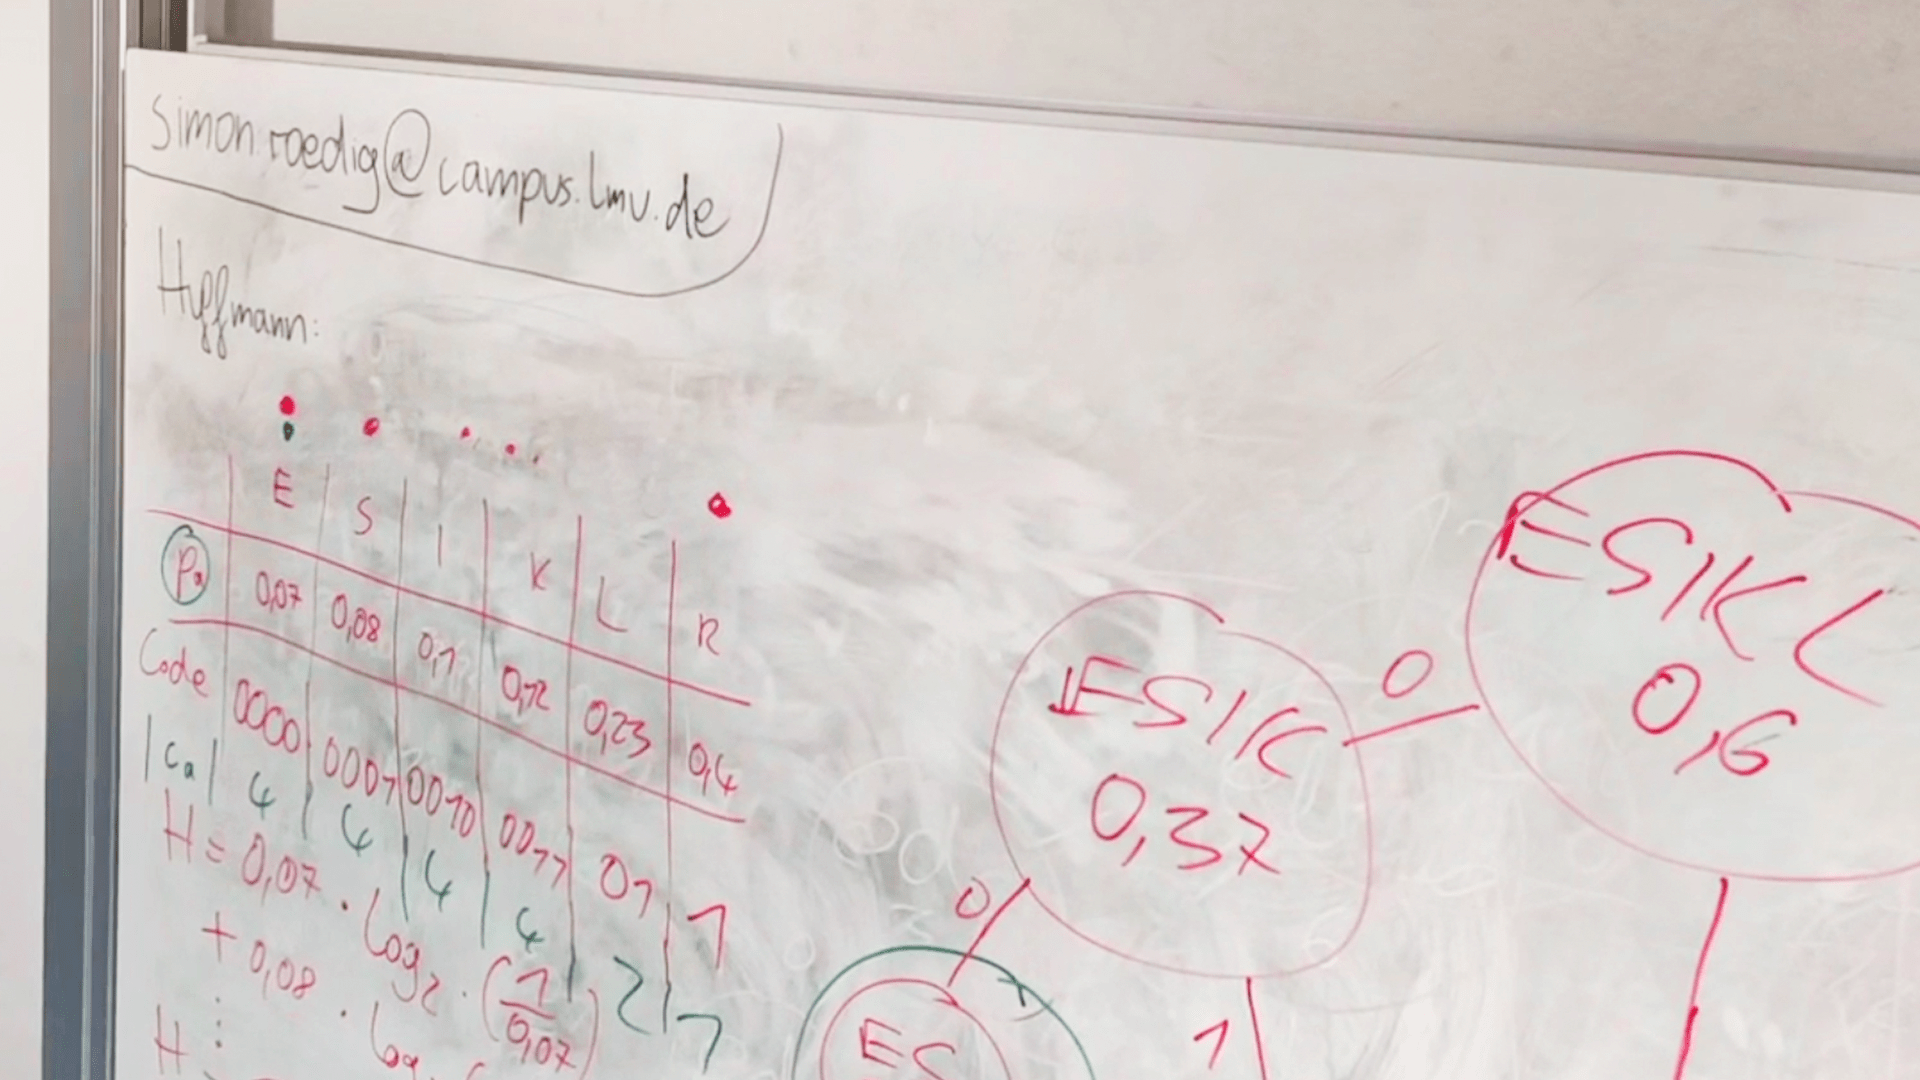 simon.roedig@campus.lmu.de
Huffmann:
E S I K L R
Pa 0,07 0,08 0,1 0,12 0,23 0,4
Code 0000 0001 0010 0011 01 1
|Ca| 4 4 4 4 2 1
H = 0,07 · log2 · (1/0,07)
+ 0,08 · log
⋮
H
ESIKL
0,6
0
ESIK
0,37
0
1
ES